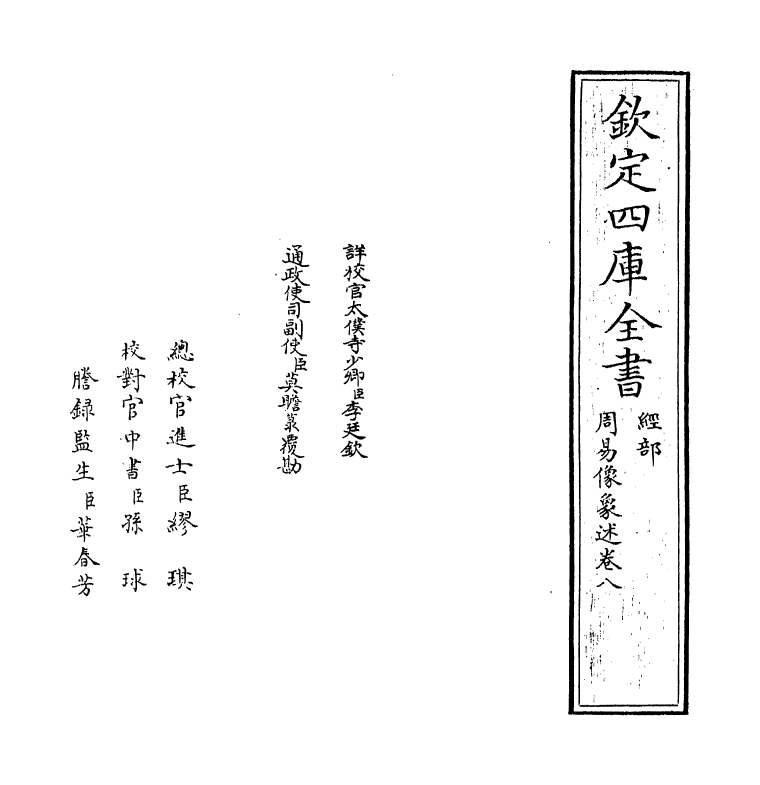 欽定四庫全書
經部
周易像象述卷八
詳校官太僕寺少卿臣李廷欽
通政使司副使臣莫瞻菉覆勘
總校官進士臣繆琪
校對官中書臣孫球
謄録監生臣華春芳